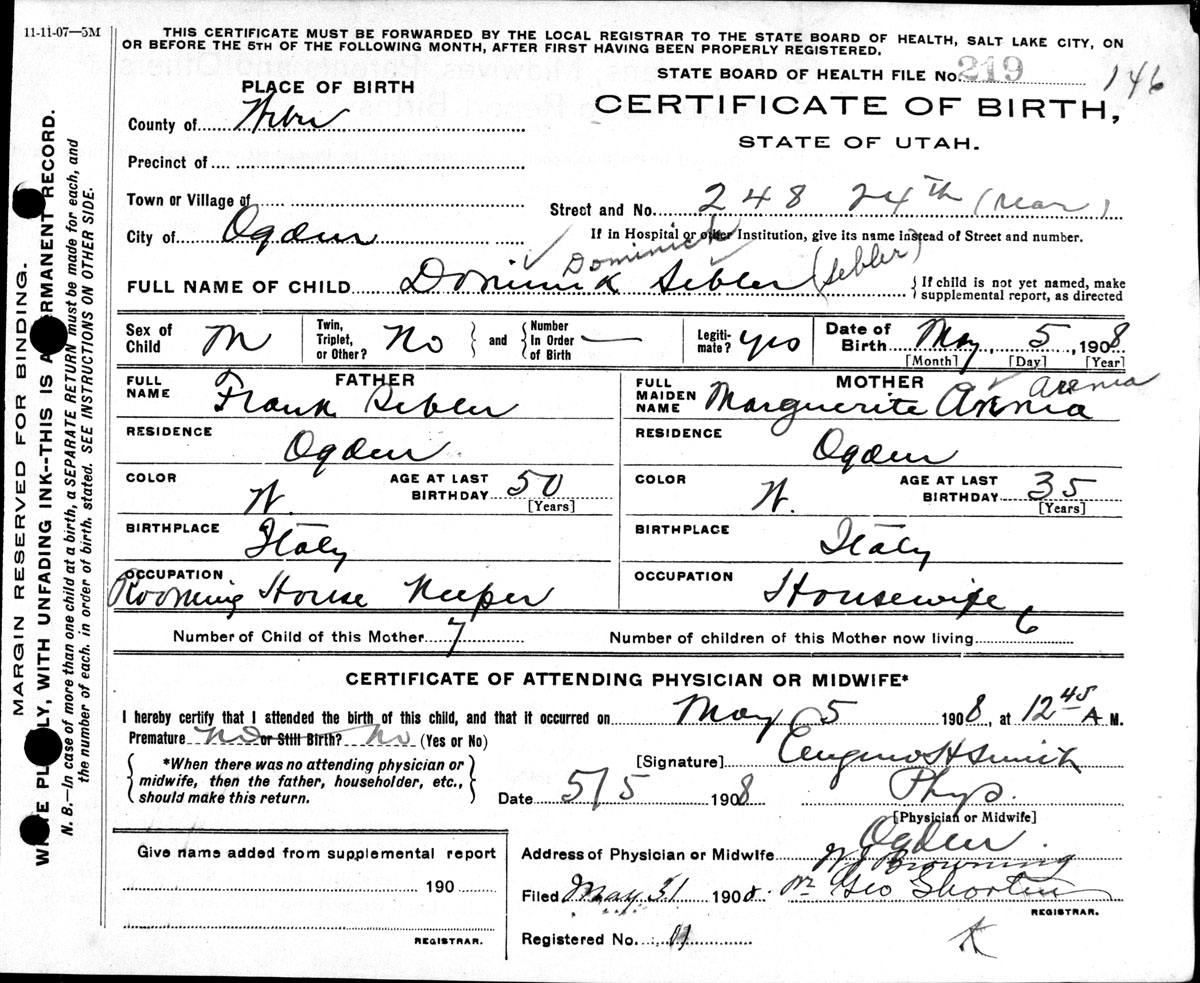 11-11-07—5M
THIS CERTIFICATE MUST BE FORWARDED BY THE LOCAL REGISTRAR TO THE STATE BOARD OF HEALTH, SALT LAKE CITY, ON
OR BEFORE THE 5TH OF THE FOLLOWING MONTH, AFTER FIRST HAVING BEEN PROPERLY REGISTERED.
STATE BOARD OF HEALTH FILE No. 219 146
PLACE OF BIRTH
CERTIFICATE OF BIRTH,
STATE OF UTAH.
County of
Precinct of
Town or Village of
Street and No. 248 24th (rear)
City of Ogden
If in Hospital or other Institution, give its name instead of Street and number.
Dominick
FULL NAME OF CHILD Dominick Sebler (Sebler)
{If child is not yet named, make
supplemental report, as directed
Sex of Child M
Twin, Triplet, or Other? No } and { Number In Order of Birth —
Legitimate? yes
Date of Birth May 5, 1908
[Month] [Day] [Year]
FATHER
FULL NAME Frank Sebler
RESIDENCE Ogden
COLOR W. AGE AT LAST BIRTHDAY 50 [Years]
BIRTHPLACE Italy
OCCUPATION Rooming House Keeper
MOTHER
FULL MAIDEN NAME Marguerite Arenia Arenia
RESIDENCE Ogden
COLOR W. AGE AT LAST BIRTHDAY 35 [Years]
BIRTHPLACE Italy
OCCUPATION Housewife
Number of Child of this Mother 7 Number of children of this Mother now living 6
CERTIFICATE OF ATTENDING PHYSICIAN OR MIDWIFE*
I hereby certify that I attended the birth of this child, and that it occurred on May 5 1908, at 12 45 A. M.
Premature No or Still Birth? No (Yes or No)
{ *When there was no attending physician or
midwife, then the father, householder, etc.,
should make this return. }
[Signature] Eugene H Smith
Date 5/5 1908 Phys.
[Physician or Midwife]
Give name added from supplemental report
190
REGISTRAR.
Address of Physician or Midwife Ogden
Browning
Filed May 31 1908. Geo Shorten
REGISTRAR.
Registered No. 11
MARGIN RESERVED FOR BINDING.
WRITE PLAINLY, WITH UNFADING INK--THIS IS A PERMANENT RECORD.
N. B.—In case of more than one child at a birth, a SEPARATE RETURN must be made for each, and
the number of each, in order of birth, stated. SEE INSTRUCTIONS ON OTHER SIDE.